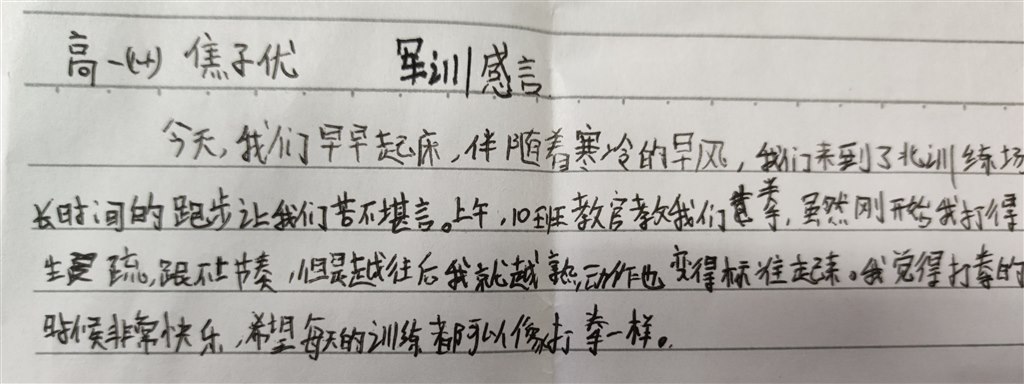 高一(4) 焦子优 军训感言
今天,我们早早起床,伴随着寒冷的早风,我们来到了北训练场
长时间的跑步让我们苦不堪言。上午,10班教官教我们拳,虽然刚开始我打得
生疏,跟不上节奏,但是越往后我就越熟,动作也变得标准起来。我觉得打拳的
时候非常快乐,希望每天的训练都可以像打拳一样。